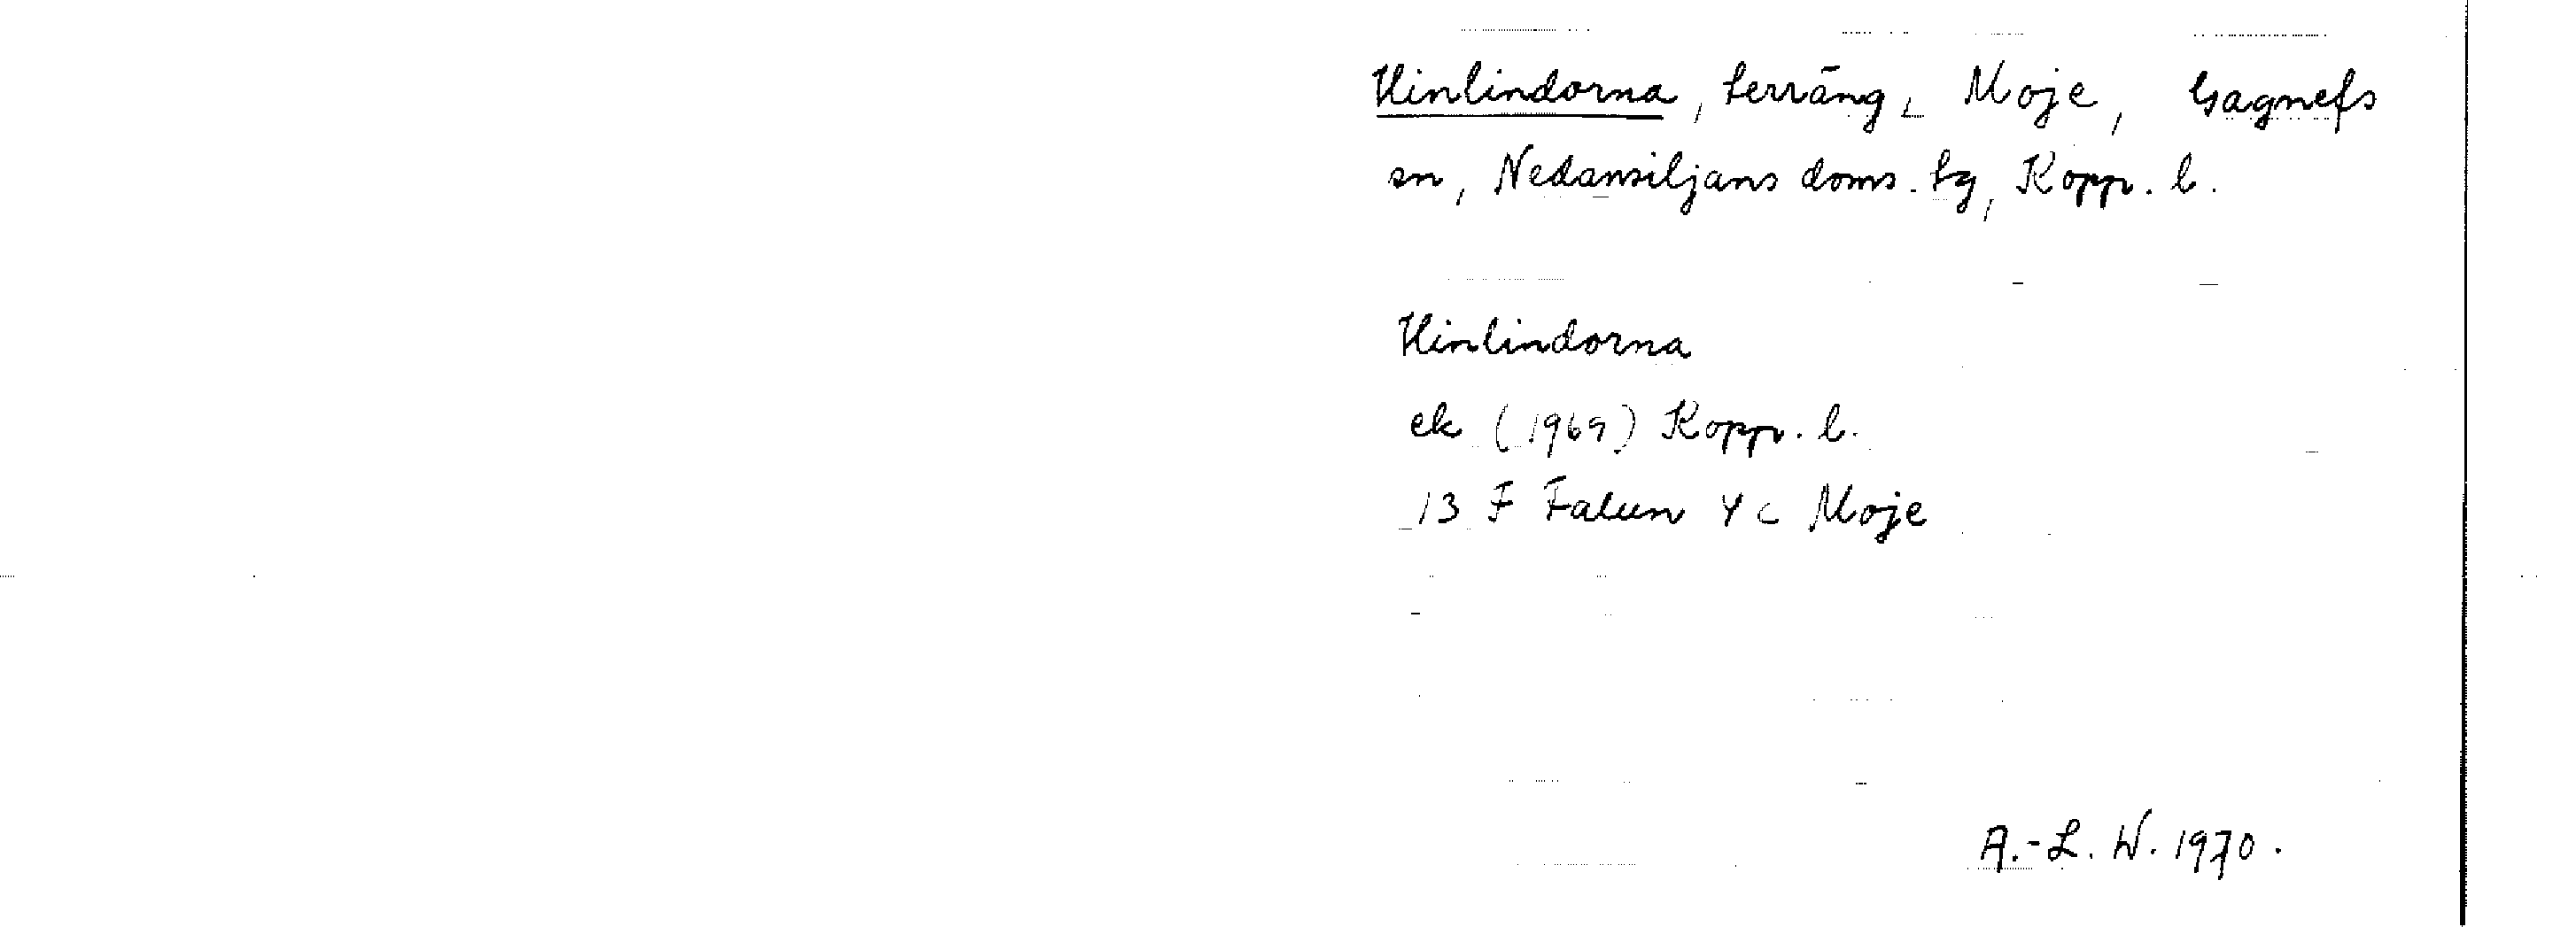 Hinlindorna, terräng, Moje, Gagnefs
sn, Nedansiljans doms. tg, Kopp. l.
Hinlindorna
ek (1969) Kopp. l.
13 F Falun 4 c Moje
A.-L. W. 1970.